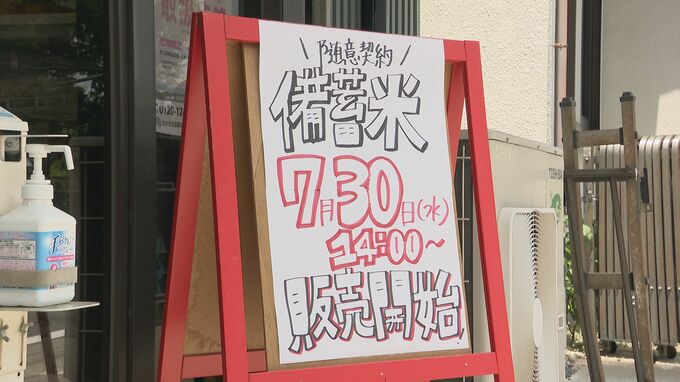 \随意契約/
備蓄米
7月30日(水)
14:00～
販売開始
0120-12
TOSHIBA